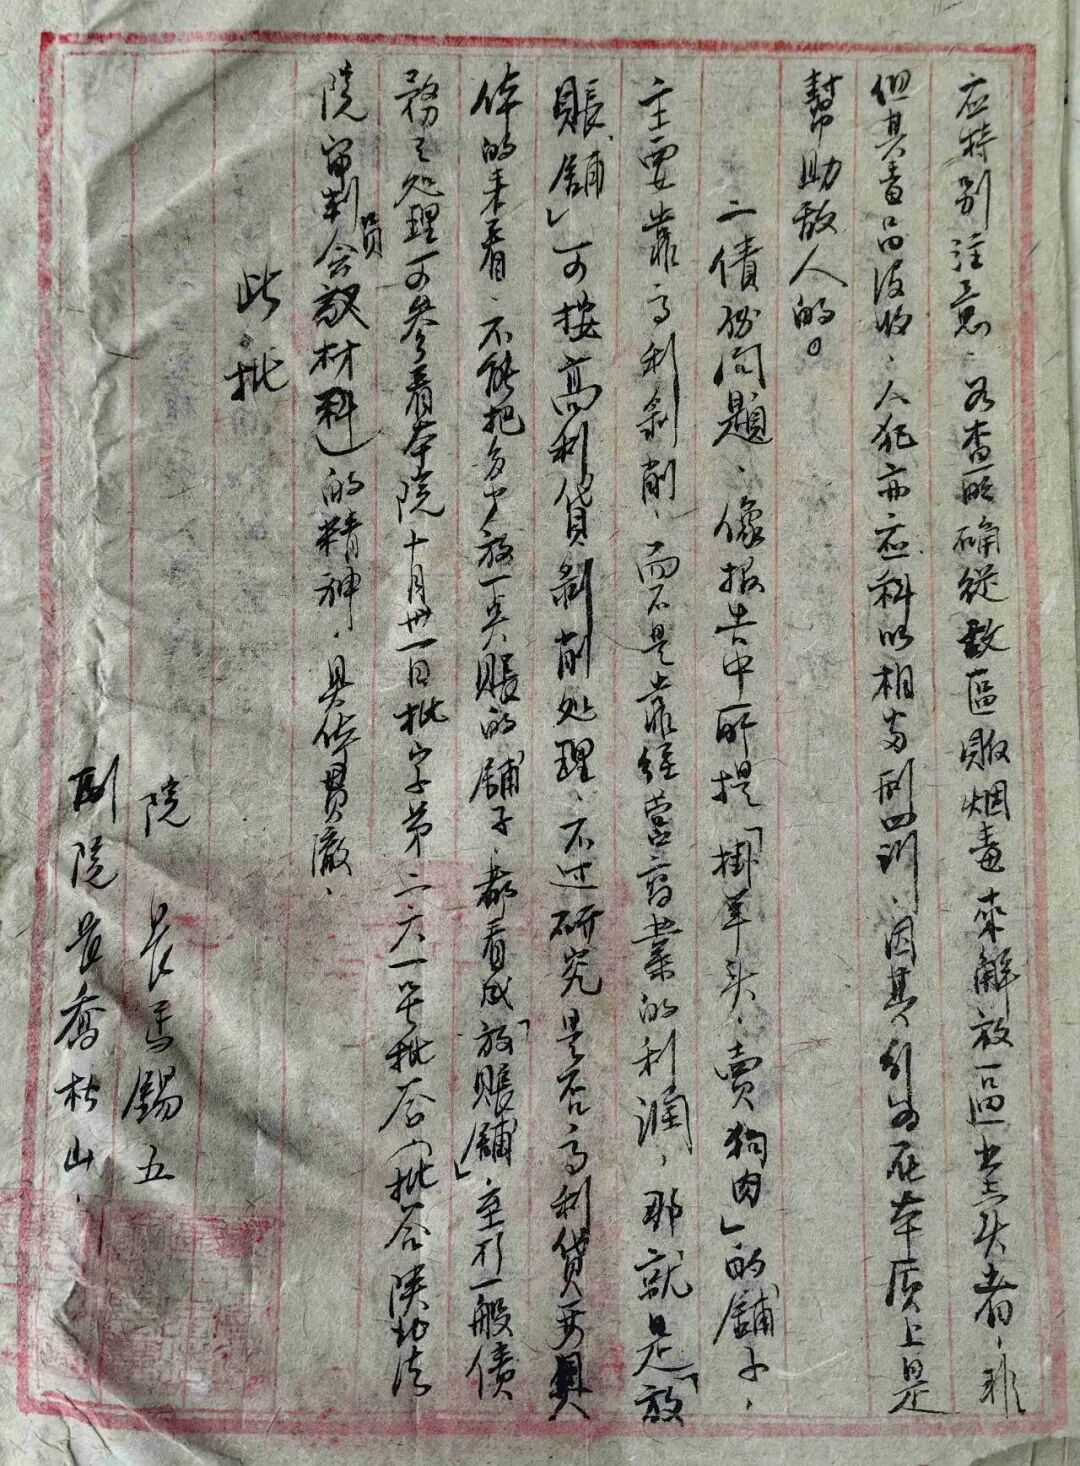 应特别注意、如查明确從敌區販烟毒來解放區出售者，非
但其毒品没收、人犯亦应科以相当刑罰、因其行为在本质上是
幫助敌人的。
二債务问題、像报告中所提「掛羊头、賣狗肉」的舖子、
主要靠高利剥削、而不是靠经营商業的利潤，那就是「放
賬舖」可按高利貸剥削处理、不过研究是否高利貸要具
体的来看、不能把多少放一点賬的舖子、都看成「放賬舖」、至於一般债
務之处理可參看本院十月卅一日批字第二六一号批答（批答陕北法
院审判員会议材料）的精神，具体貫徹、
此批
院 長 馬錫五
副院長喬松山